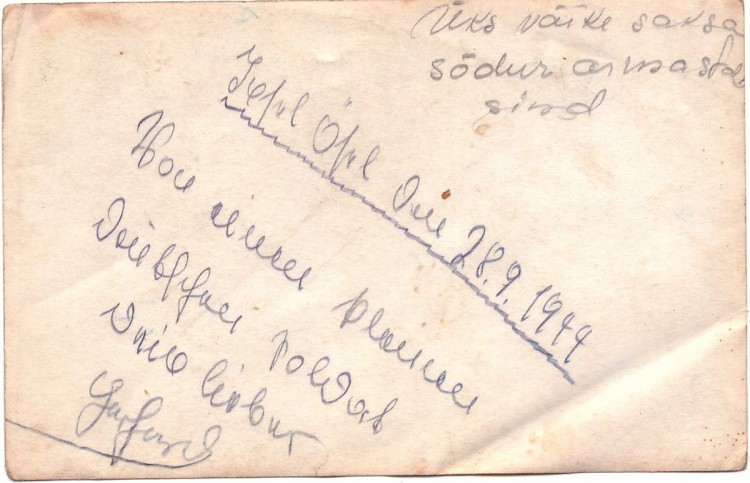 Üks väike saksa
sõdur armastab
sind
Insel Ösel den 28.9.1944
Von einem kleinen
Deutschen Soldat
Dein lieber
Gerhard